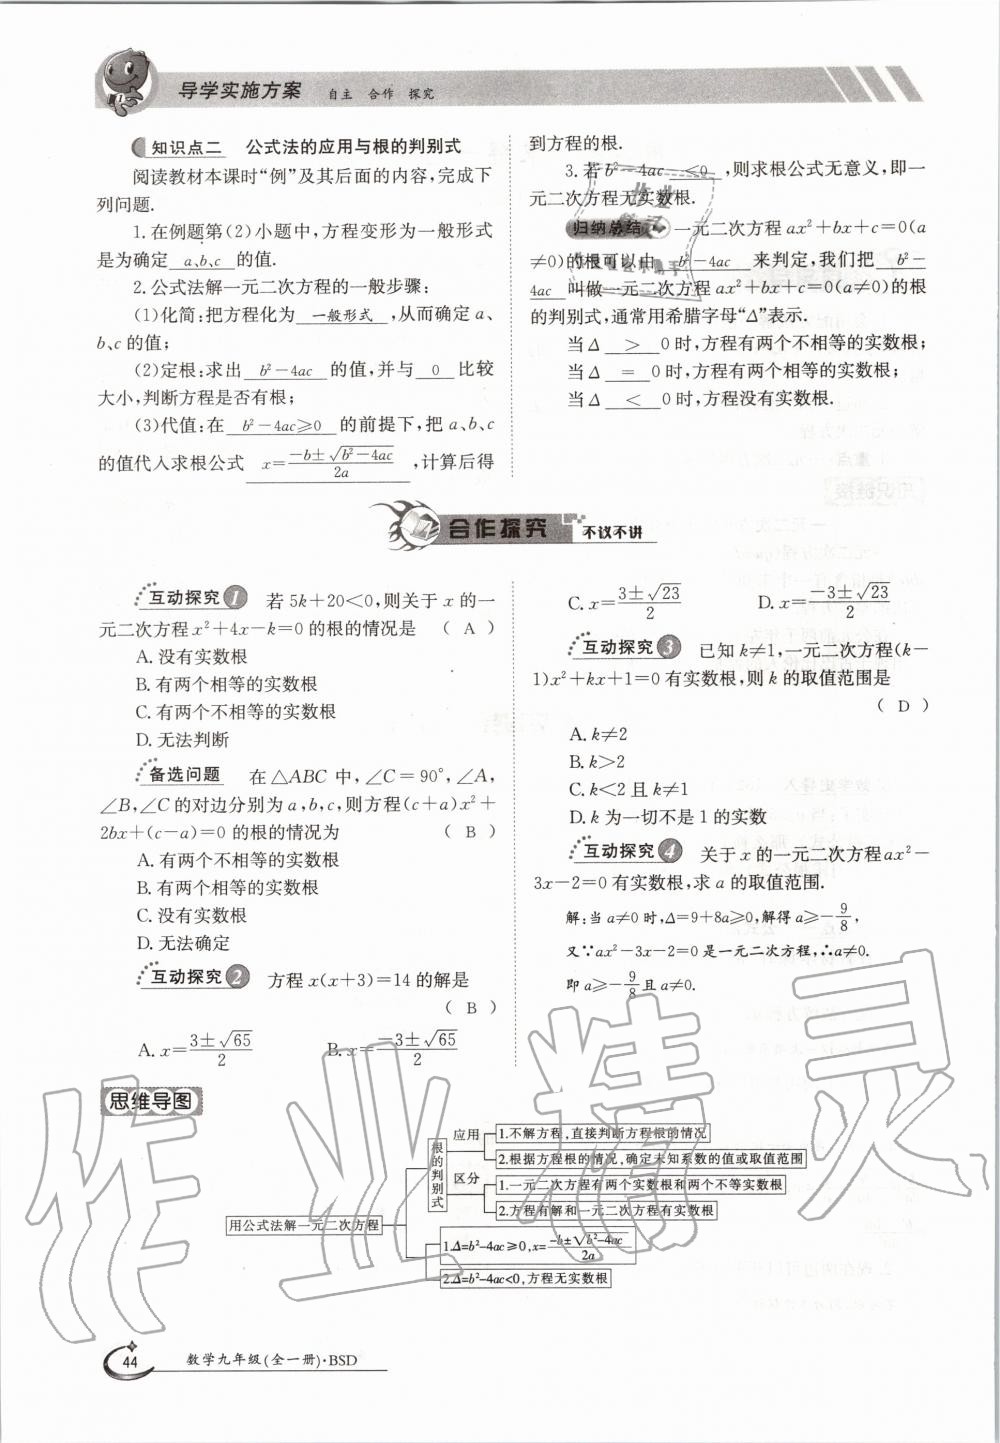 导学实施方案 自主 合作 探究
知识点二 公式法的应用与根的判别式
阅读教材本课时“例”及其后面的内容,完成下
列问题.
1.在例题第(2)小题中,方程变形为一般形式
是为确定 a、b、c 的值.
2.公式法解一元二次方程的一般步骤:
(1)化简:把方程化为 一般形式 ,从而确定 a、
b、c 的值;
(2)定根:求出 b²-4ac 的值,并与 0 比较
大小,判断方程是否有根;
(3)代值:在 b²-4ac≥0 的前提下,把 a、b、c
的值代入求根公式 x=(-b±√(b²-4ac))/2a ,计算后得
到方程的根.
3.若 b²-4ac <0 ,则求根公式无意义,即一
元二次方程无实数根.
归纳总结 一元二次方程 ax²+bx+c=0(a
≠0)的根可以由 b²-4ac 来判定,我们把 b²-
4ac 叫做一元二次方程 ax²+bx+c=0(a≠0)的根
的判别式,通常用希腊字母“Δ”表示.
当Δ > 0时,方程有两个不相等的实数根;
当Δ = 0时,方程有两个相等的实数根;
当Δ < 0时,方程没有实数根.
合作探究 不议不讲
互动探究1 若 5k+20<0,则关于 x 的一
元二次方程 x²+4x-k=0 的根的情况是 ( A )
A.没有实数根
B.有两个相等的实数根
C.有两个不相等的实数根
D.无法判断
备选问题 在△ABC 中,∠C=90°,∠A,
∠B,∠C 的对边分别为 a,b,c,则方程(c+a)x²+
2bx+(c-a)=0 的根的情况为 ( B )
A.有两个不相等的实数根
B.有两个相等的实数根
C.没有实数根
D.无法确定
互动探究2 方程 x(x+3)=14 的解是
( B )
A.x=(3±√65)/2 B.x=(-3±√65)/2
C.x=(3±√23)/2 D.x=(-3±√23)/2
互动探究3 已知 k≠1,一元二次方程(k-
1)x²+kx+1=0 有实数根,则 k 的取值范围是
( D )
A.k≠2
B.k>2
C.k<2 且 k≠1
D.k 为一切不是 1 的实数
互动探究4 关于 x 的一元二次方程 ax²-
3x-2=0 有实数根,求 a 的取值范围.
解:当 a≠0 时,Δ=9+8a≥0,解得 a≥-9/8,
又∵ax²-3x-2=0 是一元二次方程,∴a≠0.
即 a≥-9/8 且 a≠0.
思维导图
用公式法解一元二次方程
根的判别式
应用
1.不解方程,直接判断方程根的情况
2.根据方程根的情况,确定未知系数的值或取值范围
区分
1.一元二次方程有两个实数根和两个不等实数根
2.方程有解和一元二次方程有实数根
1.Δ=b²-4ac≥0,x=(-b±√(b²-4ac))/2a
2.Δ=b²-4ac<0,方程无实数根
44 数学九年级(全一册)·BSD
作业精灵